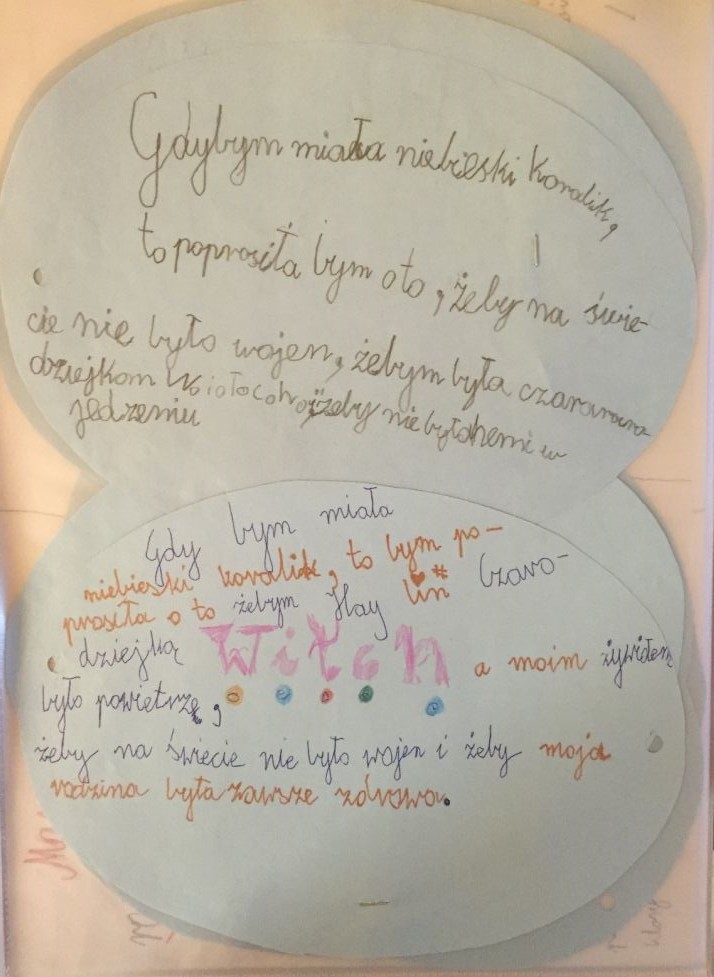 Gdybym miała niebieski koralik,
to poprosiła bym oto, żeby na świe-
cie nie było wojen, żebym była czaro
dziejkom żeby nie było hemi w
jedzeniu
Gdy bym miała
niebieski koralik, to bym po-
prosiła o to żebym Hay lin Czaro-
dziejką Witch a moim żywiołem
było powietrze,
żeby na świecie nie było wojen i żeby moja
rodzina była zawsze zdrowa.